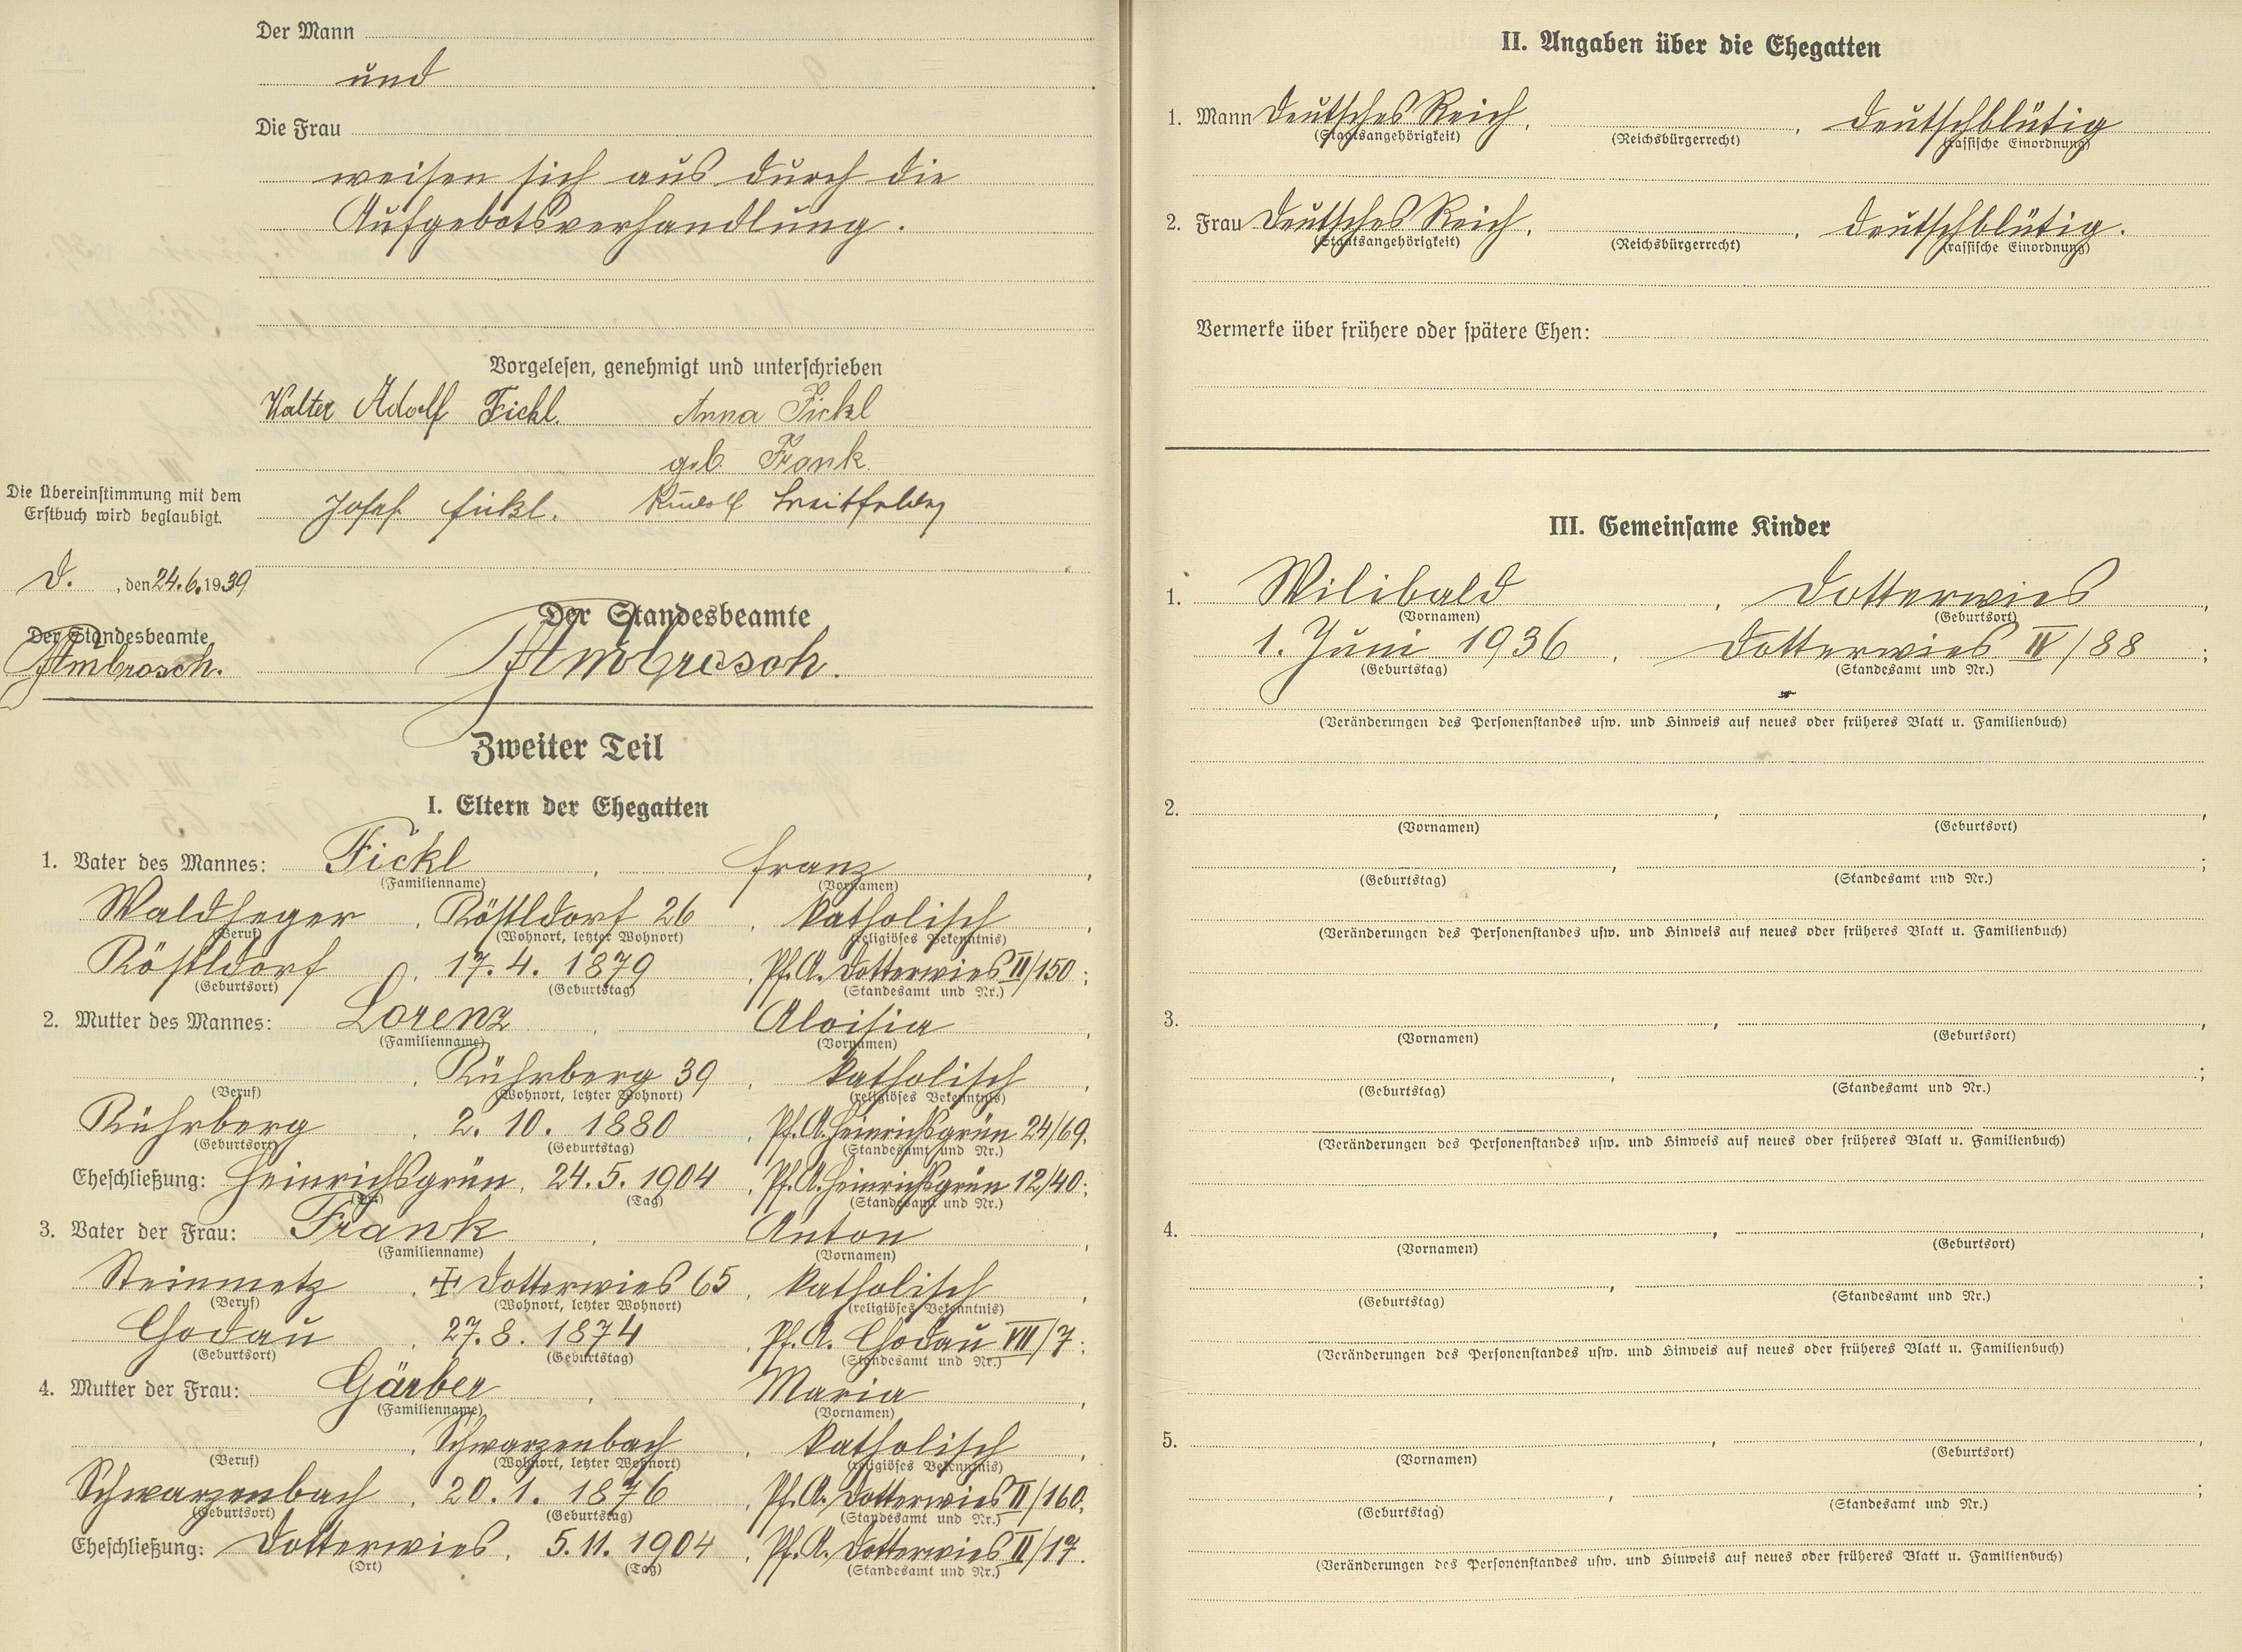 Der Mann
und
Die Frau
weisen sich aus durch die
Aufgebotsverhandlung.
Vorgelesen, genehmigt und unterschrieben
Walter Adolf Fickl. Anna Fickl
geb. Frank.
Die Übereinstimmung mit dem
Erstbuch wird beglaubigt.
Josef Fickl. Rudolf
D. , den 24.6.1939
Der Standesbeamte
Der Standesbeamte
Ambrosch. Ambrosch.
Zweiter Teil
I. Eltern der Ehegatten
1. Vater des Mannes: Fickl , Franz ,
(Familienname) (Vornamen)
Waldheger , Röstldorf 26 , katholisch ,
(Beruf) (Wohnort, letzter Wohnort) (religiöses Bekenntnis)
Röstldorf , 17.4. 1879 , Pf.A. Dotterwies II/150 ;
(Geburtsort) (Geburtstag) (Standesamt und Nr.)
2. Mutter des Mannes: Lorenz , Aloisia ,
(Familienname) (Vornamen)
, Rührberg 39 , katholisch ,
(Beruf) (Wohnort, letzter Wohnort) (religiöses Bekenntnis)
Rührberg , 2. 10. 1880 , Pf.A. Heinrichsgrün 24/69,
(Geburtsort) (Geburtstag) (Standesamt und Nr.)
Eheschließung: Heinrichsgrün, 24.5.1904 , Pf.A. Heinrichsgrün 12/40 ;
(Ort) (Tag) (Standesamt und Nr.)
3. Vater der Frau: Frank , Anton ,
(Familienname) (Vornamen)
Steinmetz , ✝ Dotterwies 65 , katholisch ,
(Beruf) (Wohnort, letzter Wohnort) (religiöses Bekenntnis)
Chodau , 27.8. 1874 , Pf.A. Chodau VII/7 ;
(Geburtsort) (Geburtstag) (Standesamt und Nr.)
4. Mutter der Frau: Gärber , Maria ,
(Familienname) (Vornamen)
, Schwarzenbach , katholisch ,
(Beruf) (Wohnort, letzter Wohnort) (religiöses Bekenntnis)
Schwarzenbach , 20.1. 1876 , Pf.A. Dotterwies II/160,
(Geburtsort) (Geburtstag) (Standesamt und Nr.)
Eheschließung: Dotterwies , 5.11. 1904 , Pf.A. Dotterwies II/17.
(Ort) (Tag) (Standesamt und Nr.)
II. Angaben über die Ehegatten
1. Mann Deutsches Reich , , deutschblütig
(Staatsangehörigkeit) (Reichsbürgerrecht) (rassische Einordnung)
2. Frau Deutsches Reich , , deutschblütig.
(Staatsangehörigkeit) (Reichsbürgerrecht) (rassische Einordnung)
Vermerke über frühere oder spätere Ehen:
III. Gemeinsame Kinder
1. Wilibald , Dotterwies ,
(Vornamen) (Geburtsort)
1. Juni 1936 , Dotterwies IV/88 ;
(Geburtstag) (Standesamt und Nr.)
(Veränderungen des Personenstandes usw. und Hinweis auf neues oder früheres Blatt u. Familienbuch)
2. , ,
(Vornamen) (Geburtsort)
, ;
(Geburtstag) (Standesamt und Nr.)
(Veränderungen des Personenstandes usw. und Hinweis auf neues oder früheres Blatt u. Familienbuch)
3. , ,
(Vornamen) (Geburtsort)
, ;
(Geburtstag) (Standesamt und Nr.)
(Veränderungen des Personenstandes usw. und Hinweis auf neues oder früheres Blatt u. Familienbuch)
4. , ,
(Vornamen) (Geburtsort)
, ;
(Geburtstag) (Standesamt und Nr.)
(Veränderungen des Personenstandes usw. und Hinweis auf neues oder früheres Blatt u. Familienbuch)
5. , ,
(Vornamen) (Geburtsort)
, ;
(Geburtstag) (Standesamt und Nr.)
(Veränderungen des Personenstandes usw. und Hinweis auf neues oder früheres Blatt u. Familienbuch)